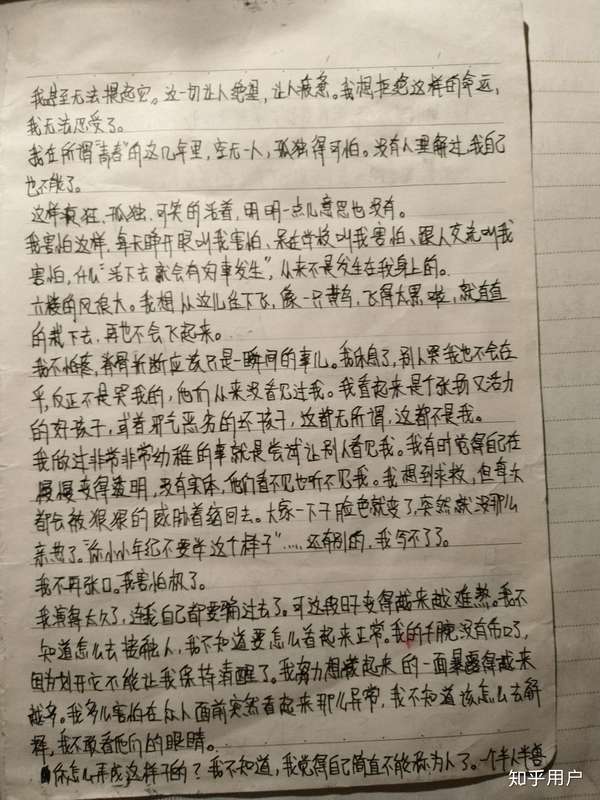 我甚至无法提起它。这一切让人绝望，让人疲惫。我想拒绝这样的命运，
我无法忍受了。
我在所谓"青春"的这几年里，空无一人，孤独得可怕。没有人理解过，我自己
也不能了。
这样疯狂、孤独、可笑的活着，明明一点儿意思也没有。
我害怕这样，每天睁开眼叫我害怕、呆在学校叫我害怕、跟人交流叫我
害怕，什么"活下去就会有好事发生"，从来不是发生在我身上的。
六楼的风很大。我想从这儿往下飞，像一只黄鸟，飞得太累啦，就直直
的栽下去，再也不会飞起来。
我不怕疼，脊骨折断应该只是一瞬间的事儿。我休息了，别人哭我也不会在
乎，反正不是哭我的，他们从来没看见过我。我看起来是个张扬又活力
的好孩子，或者邪气恶劣的坏孩子，这都无所谓，这都不是我。
我做过非常非常幼稚的事就是尝试让别人看见我。我有时觉得自己在
慢慢变得透明，没有实体，他们看不见也听不见我。我想到求救，但每次
都会被狠狠的威胁着缩回去。大家一下子脸色就变了，突然就没那么
亲热了。"你小小年纪不要学这个样子"……还有别的，我写不了了。
我不再张口。我害怕极了。
我演得太久了，连我自己都要骗过去了。可这段日子变得越来越难熬。我不
知道怎么去接触人，我不知道要怎么看起来正常。我的手腕没有伤口了，
因为划开它不能让我保持清醒了。我努力想藏起来的一面暴露得越来
越多。我多么害怕在众人面前突然看起来那么异常，我不知道该怎么去解
释，我不敢看他们的眼睛。
你怎么弄成这样子的？我不知道，我觉得自己简直不能称为人了。一个半人半兽
知乎用户